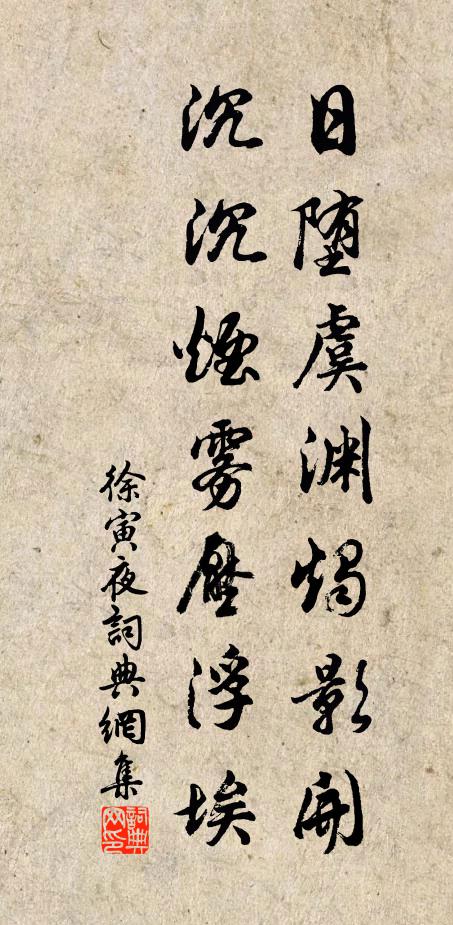 日堕虞渊燭影開
沉沉煙雾壓浮埃
徐寅夜詞典網集
詞典网印